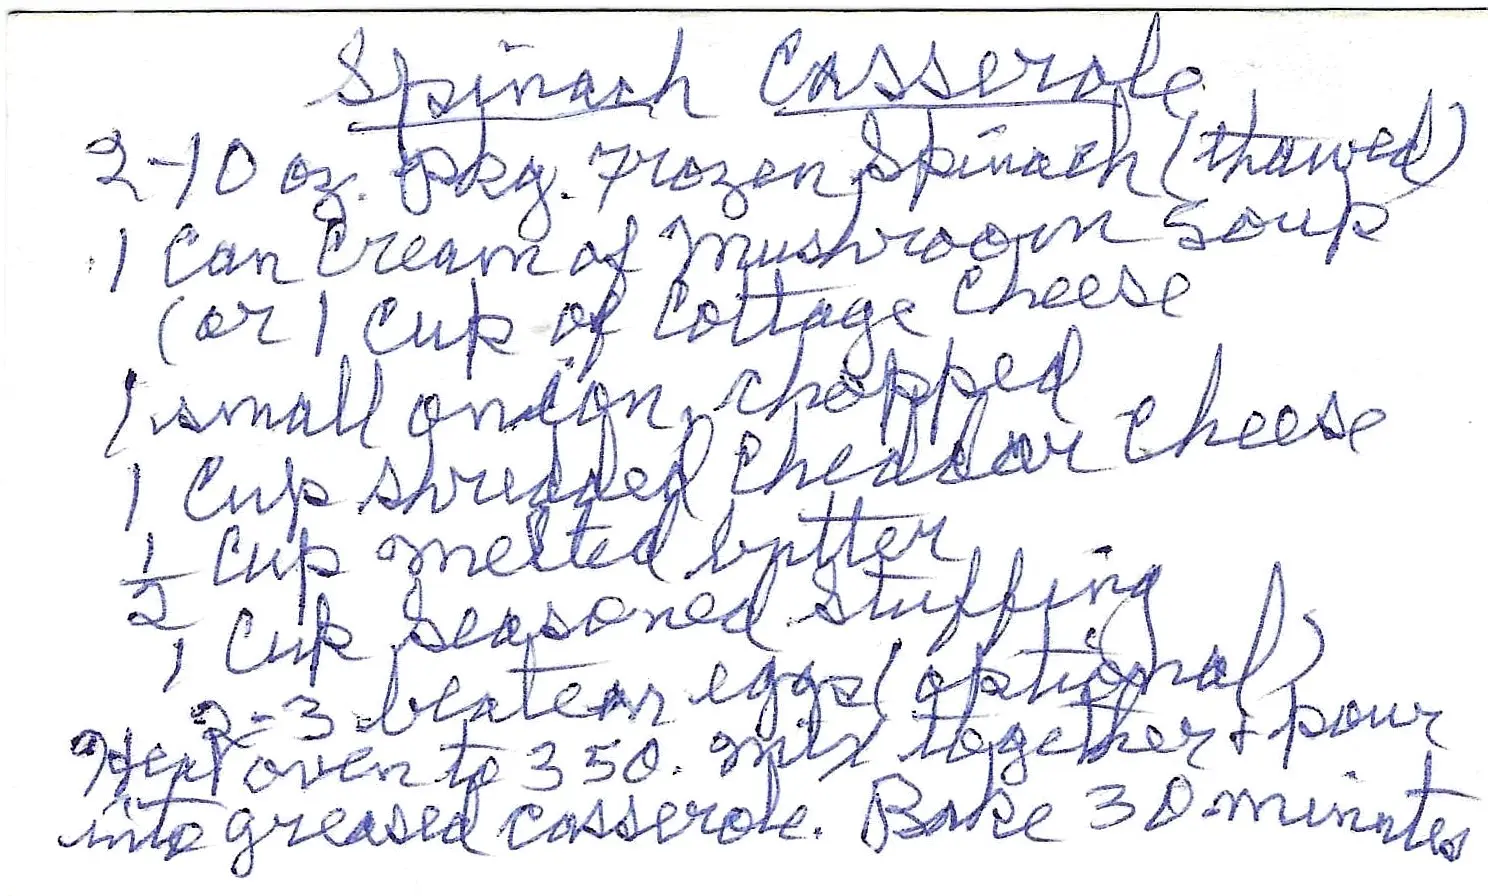 Spinach Casserole
2-10 oz. pkg. Frozen Spinach (thawed)
1 Can Cream of Mushroom Soup
(or 1 Cup of Cottage Cheese
1 small onion, chopped
1 Cup shredded Cheddar Cheese
1/2 Cup melted butter
1 Cup Seasoned Stuffing
2-3 beaten eggs (optional)
Heat oven to 350. Mix together + pour
into greased casserole. Bake 30 minutes